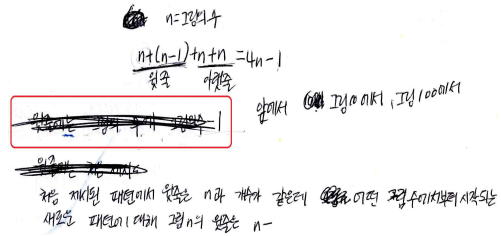 n=그림의 수
n+(n-1)+n+n=4n-1
윗줄 아랫줄
앞에서 그림10에서, 그림100에서
1
처음 제시된 패턴에서 윗줄은 n과 개수가 같은데 어떤 그림 수에서부터 시작되는
새로운 패턴에 대해 그림n의 윗줄은 n-